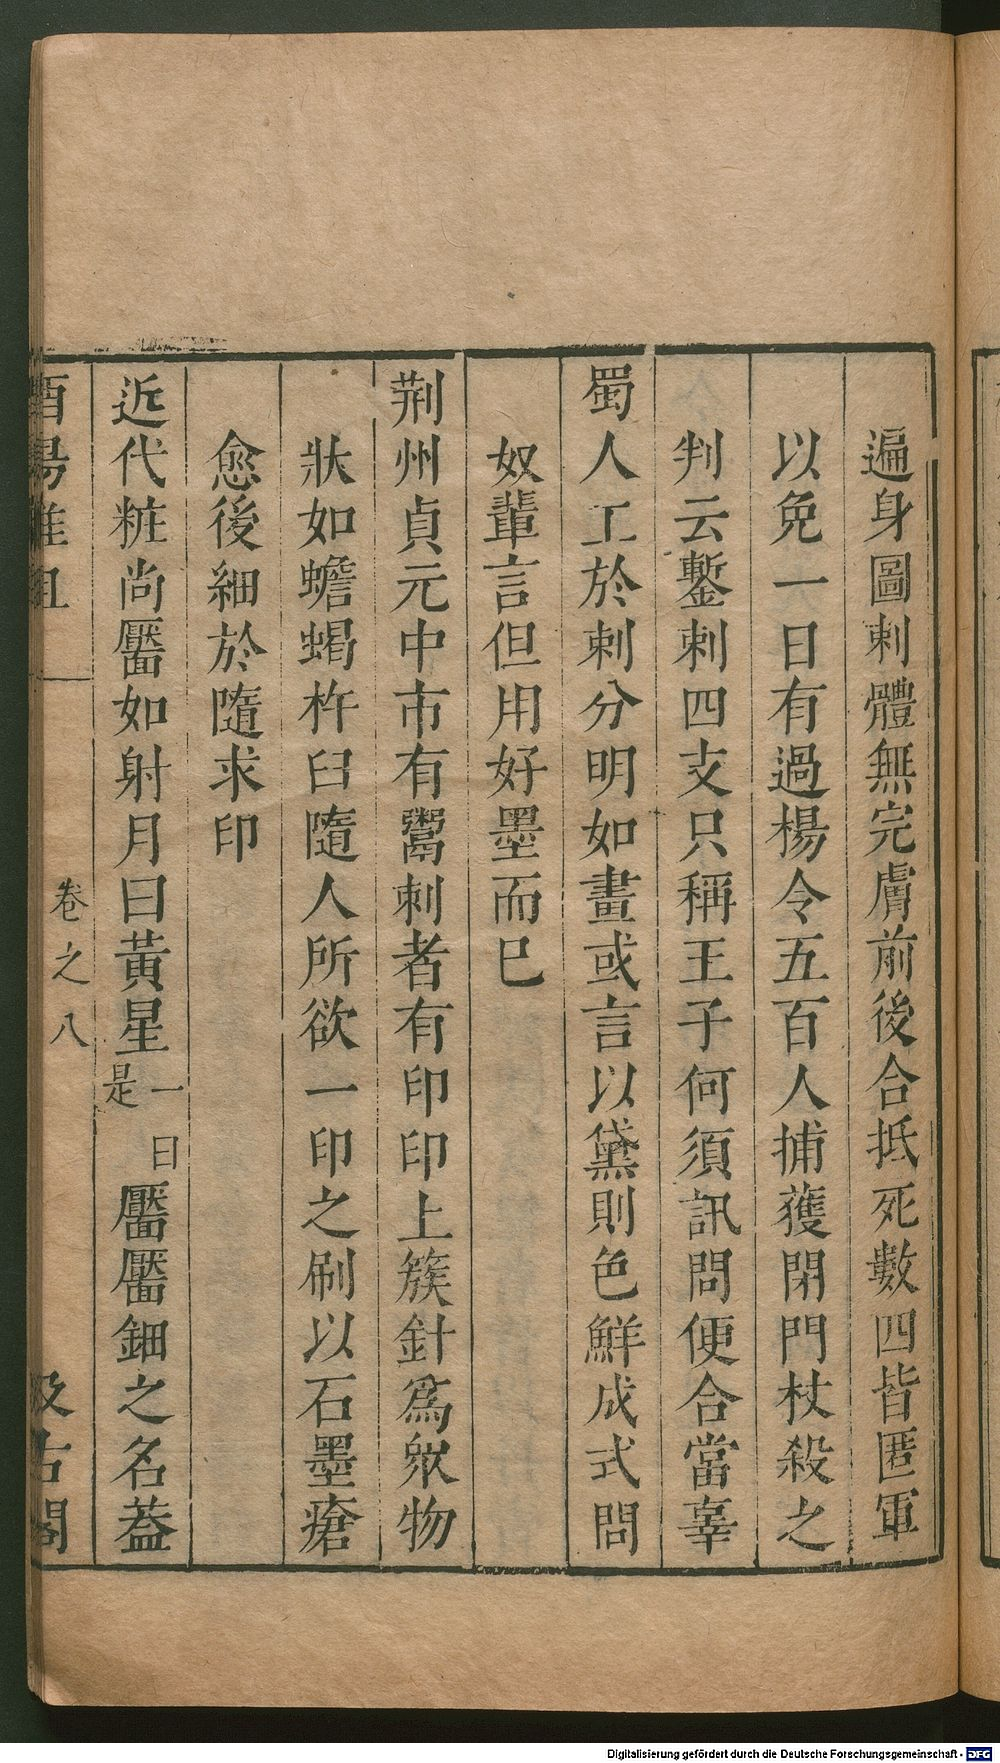 遍身圖刺體無完膚前後合抵死數四皆匿軍
以免一日有過楊令五百人捕獲閉門杖殺之
判云鏨刺四支只稱王子何須訊問便合當辜
蜀人工於刺分明如畫或言以黛則色鮮成式問
奴輩言但用好墨而巳
荆州貞元中市有鬻刺者有印印上簇針爲衆物
狀如蟾蝎杵臼隨人所欲一印之刷以石墨瘡
愈後細於隨求印
近代粧尚靨如射月曰黃星一曰是靨靨鈿之名葢
酉陽雜俎
卷之八
汲古閣
Digitalisierung gefördert durch die Deutsche Forschungsgemeinschaft - DFG